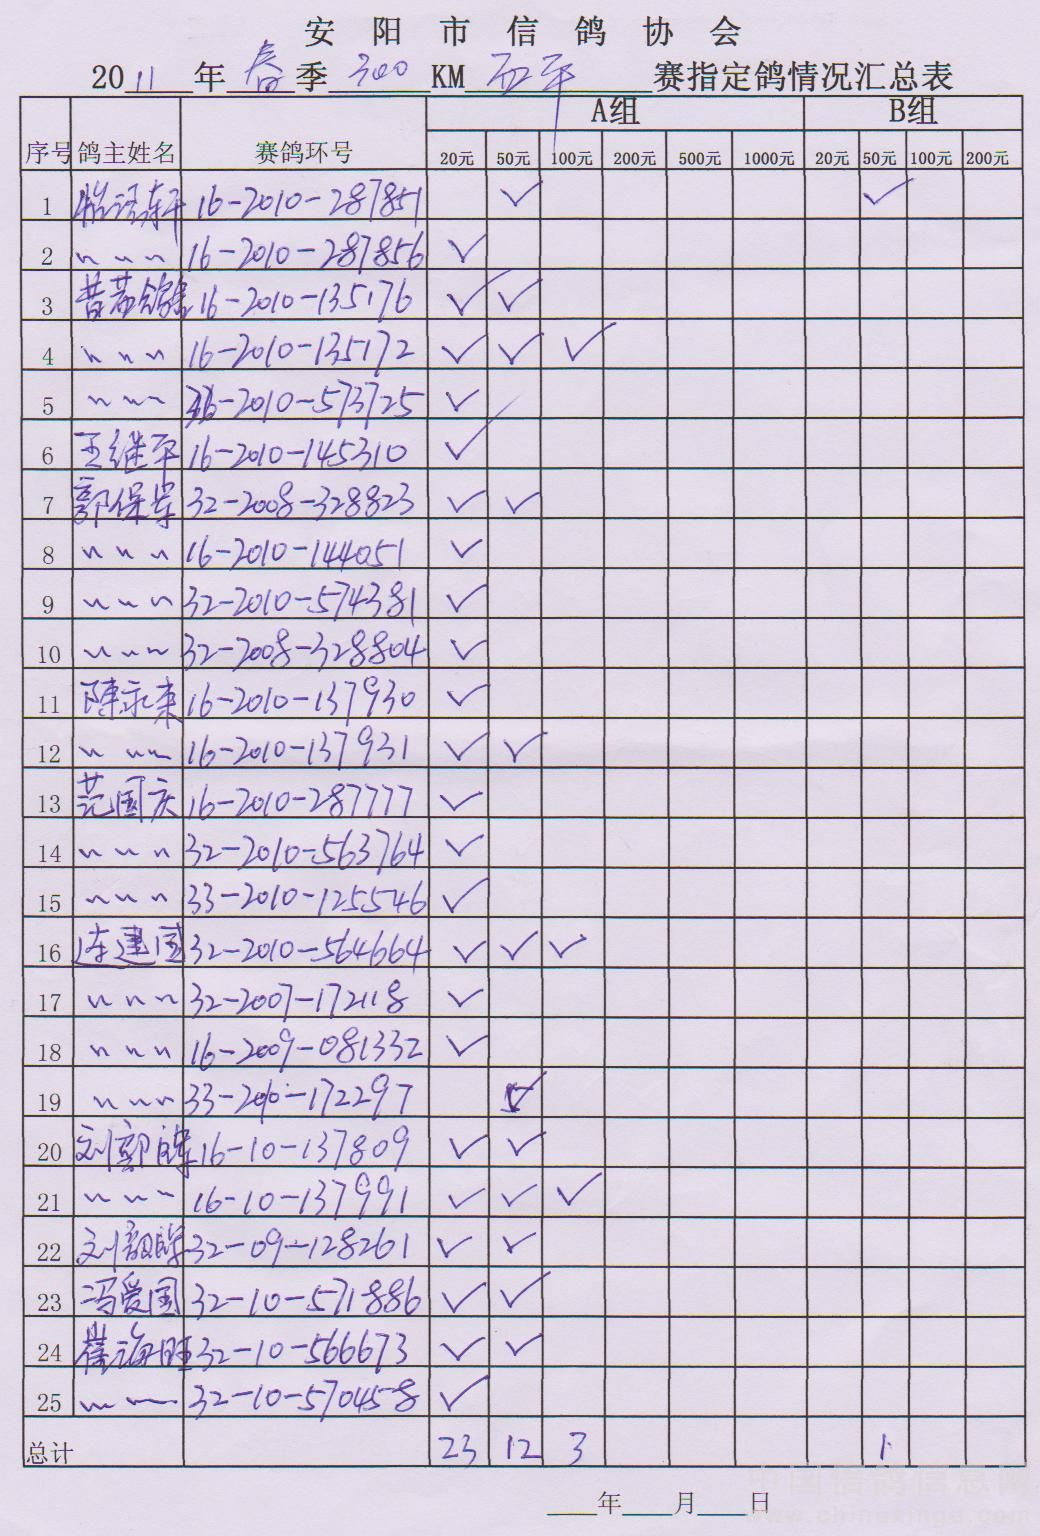 安 阳 市 信 鸽 协 会
2011年春季300KM 赛指定鸽情况汇总表
序号 鸽主姓名 赛鸽环号 A组 B组
20元 50元 100元 200元 500元 1000元 20元 50元 100元 200元
1 16-2010-287851 ✓ ✓
2 〃 〃 〃 16-2010-287856 ✓
3 16-2010-135176 ✓ ✓
4 〃 〃 〃 16-2010-135172 ✓ ✓ ✓
5 〃 〃 〃 -2010-573725 ✓
6 王继平 16-2010-145310 ✓
7 郭保岸 32-2008-328823 ✓ ✓
8 〃 〃 〃 16-2010-144051 ✓
9 〃 〃 〃 32-2010-574381 ✓
10 〃 〃 〃 32-2008-328804 ✓
11 陈永来 16-2010-137930 ✓
12 〃 〃 〃 16-2010-137931 ✓ ✓
13 范国庆 16-2010-287777 ✓
14 〃 〃 〃 32-2010-563764 ✓
15 〃 〃 〃 33-2010-125546 ✓
16 连建国 32-2010-564664 ✓ ✓ ✓
17 〃 〃 〃 32-2007-172118 ✓
18 〃 〃 〃 16-2009-081332 ✓
19 〃 〃 〃 33-2010-172297 ✓
20 16-10-137809 ✓ ✓
21 〃 〃 〃 16-10-137991 ✓ ✓ ✓
22 32-09-128261 ✓ ✓
23 冯爱国 32-10-571886 ✓ ✓
24 崔海旺 32-10-566673 ✓ ✓
25 〃 〃 32-10-570458 ✓
总计 23 12 3 1
年 月 日
中国信鸽信息网
www.chinaxinge.com